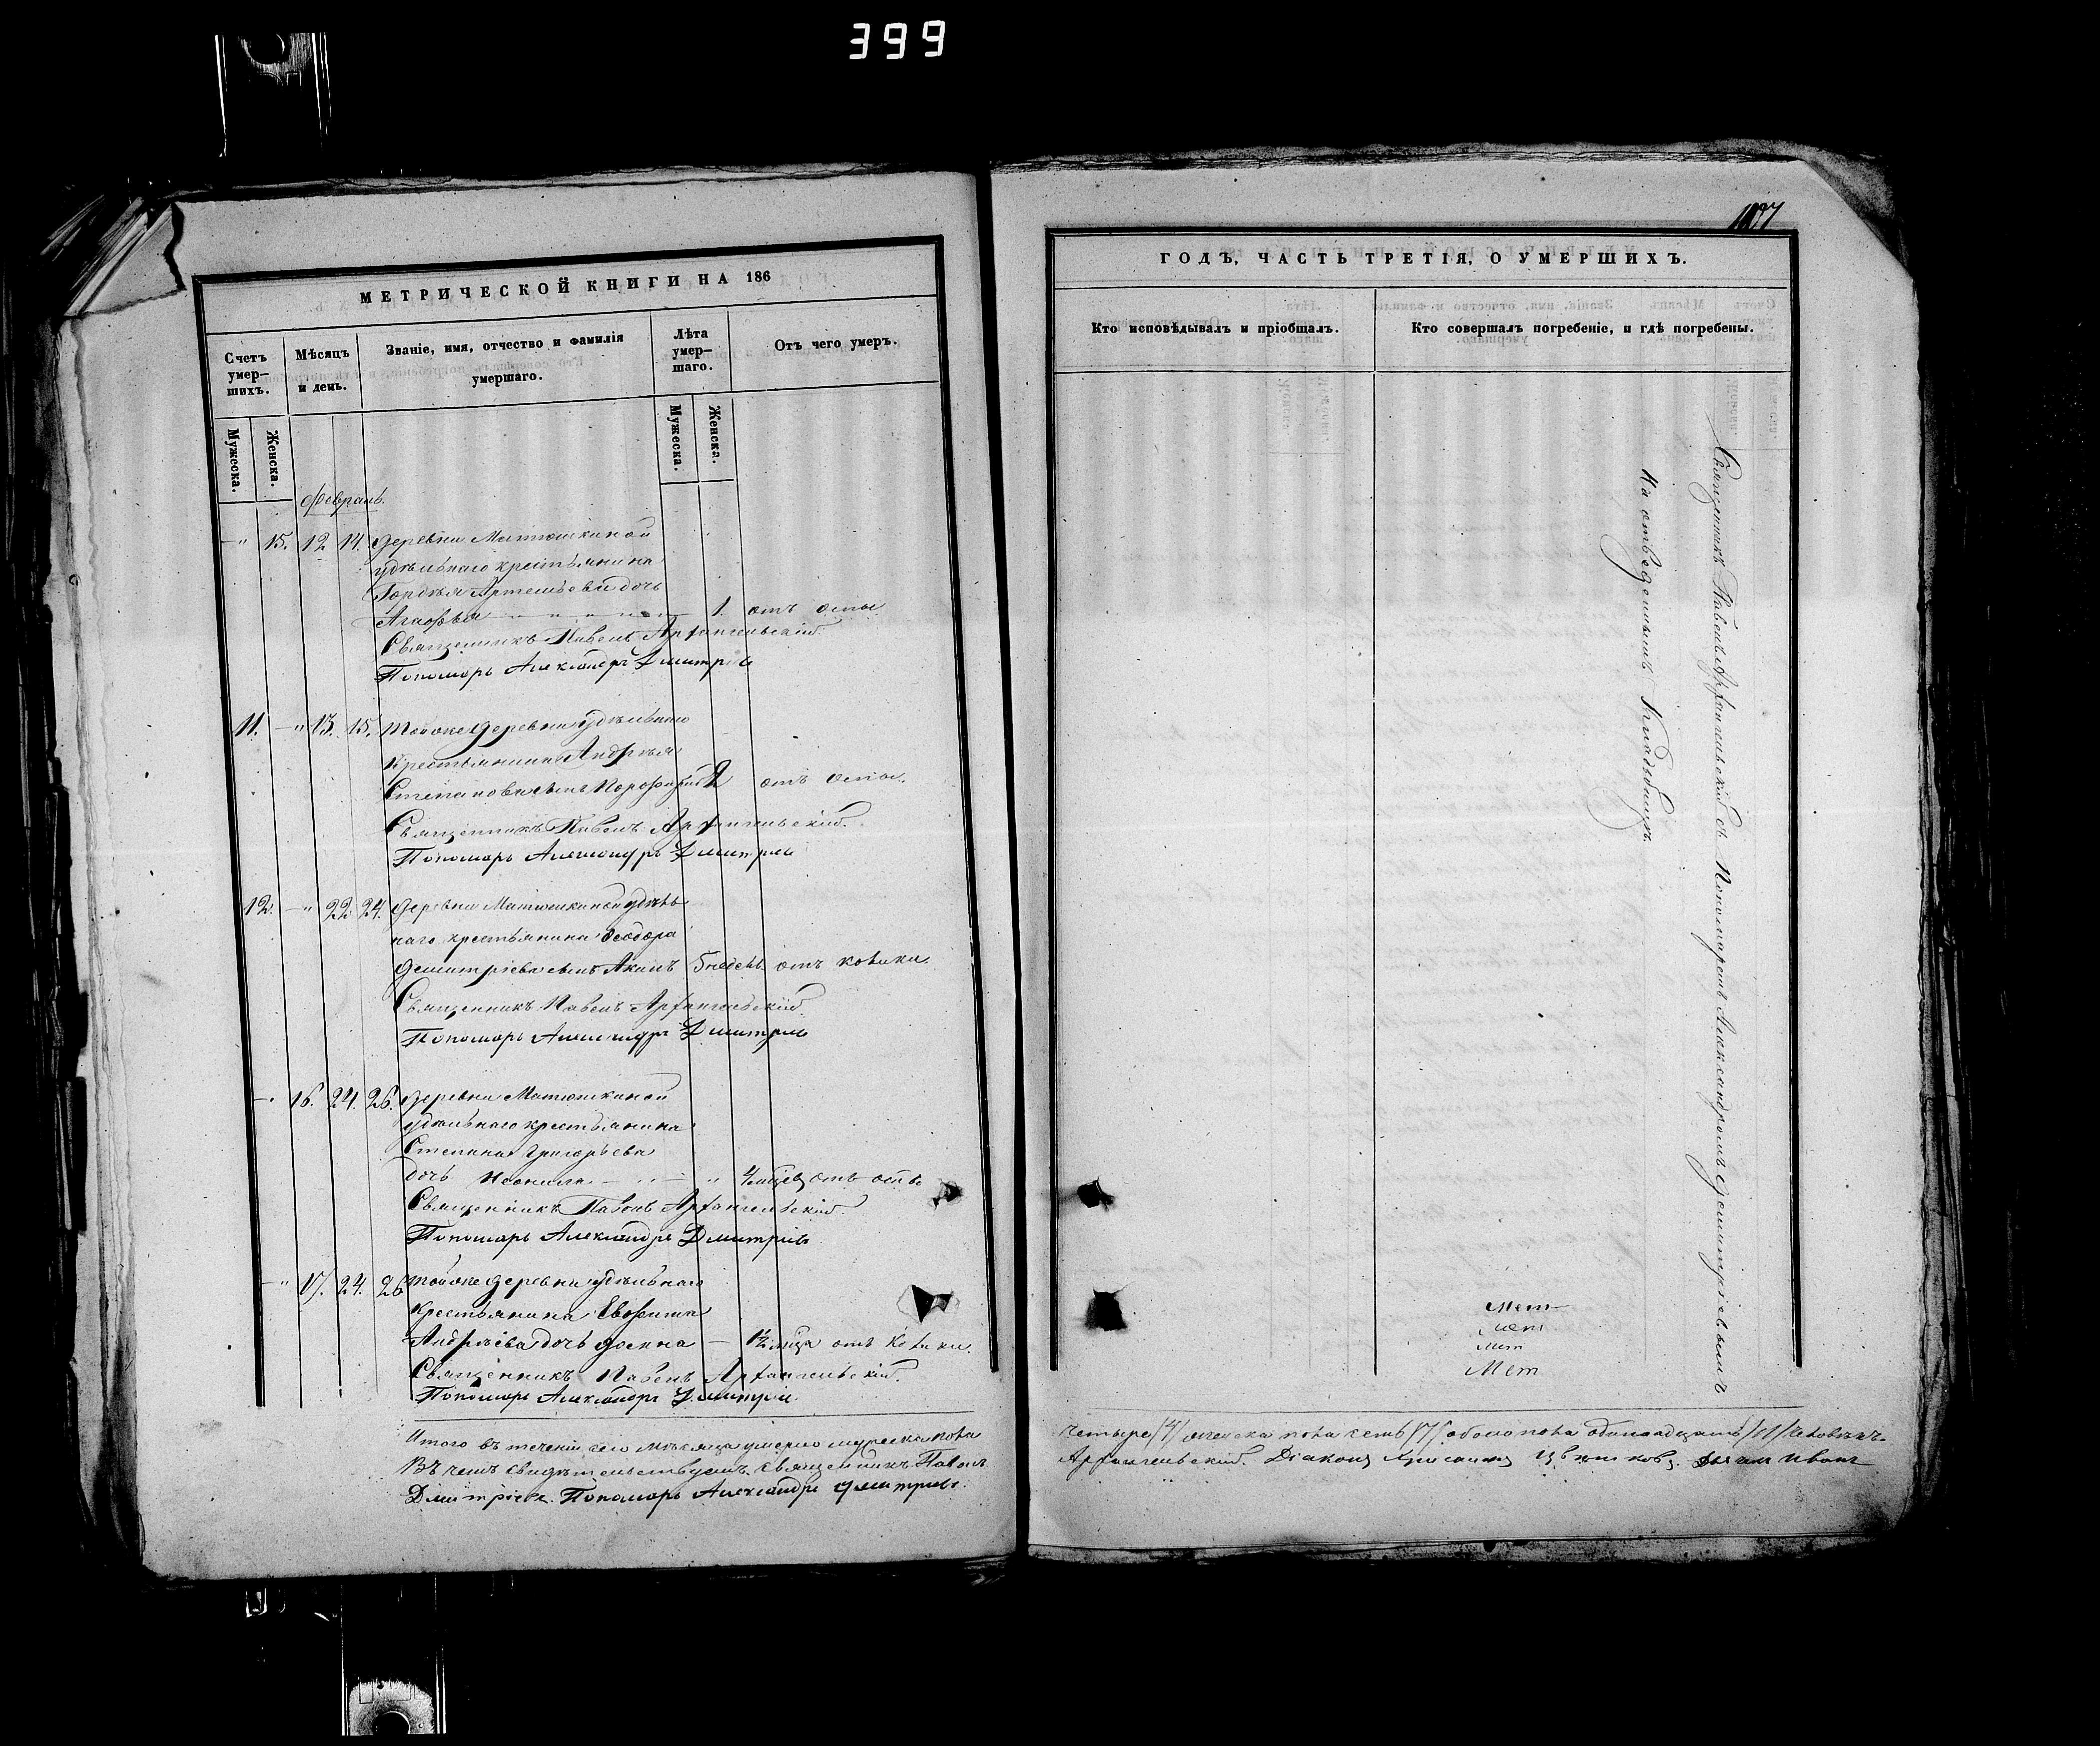 399
МЕТРИЧЕСКОЙ КНИГИ НА 186
Счетъ умер-шихъ.
Мѣсяцъ и день.
Званіе, имя, отчество и фамилія умершаго.
Лѣта умер-шаго.
Отъ чего умеръ.
Мужеска.
Женска.
Мужеска.
Женска.
Февраль.
15. 12 14. деревни Матюшкиной
удѣльнаго крестьянина
Гордѣя Артемьева дочь
Агафья 1. отъ оспы
Священникъ Павелъ Архангельскій
Пономарь Александръ Дмитріевъ
11. 13. 15. тойже деревни удѣльнаго
крестьянина Андрѣя
Степанова сынъ Порфирій 2 отъ оспы.
Священникъ Павелъ Архангельскій.
Пономарь Александръ Дмитріевъ
12. 22 24. деревни Матюшкиной удѣль
наго крестьянина Феодора
Димитріева сынъ Акимъ 5 недѣль. отъ колики
Священникъ Павелъ Архангельскій.
Пономарь Александръ Дмитріевъ
16. 24. 26. деревни Матюшкиной
удѣльнаго крестьянина
Степана Григорьева
дочь Неонила 4 мѣсяц отъ оспы
Священникъ Павелъ Архангельскій.
Пономарь Александръ Дмитріевъ
17. 24. 26 тойже деревни удѣльнаго
крестьянина Евфима
Андрѣева дочь 1½ мѣся отъ колики.
Священникъ Павелъ Архангельскій.
Пономарь Александръ Дмитріевъ
Итого въ теченіи сего мѣсяца умерло мужеска пола
Въ чемъ свидѣтельствуемъ. Священникъ Павелъ
Дмитріевъ. Пономарь Александръ Дмитріевъ.
1107
ГОДЪ, ЧАСТЬ ТРЕТІЯ, О УМЕРШИХЪ.
Кто исповѣдывалъ и пріобщалъ.
Кто совершалъ погребеніе, и гдѣ погребены.
Священникъ Павелъ Архангельскій съ Пономаремъ Александромъ Димитріевымъ
На отведенномъ кладбищѣ.
Мет
Мет
Мет
Мет
четыре /4/ женска пола семь /7/ обоего пола одинадцать /11/ человѣкъ.
Архангельскій. Діаконъ Цвѣтковъ. Иванъ